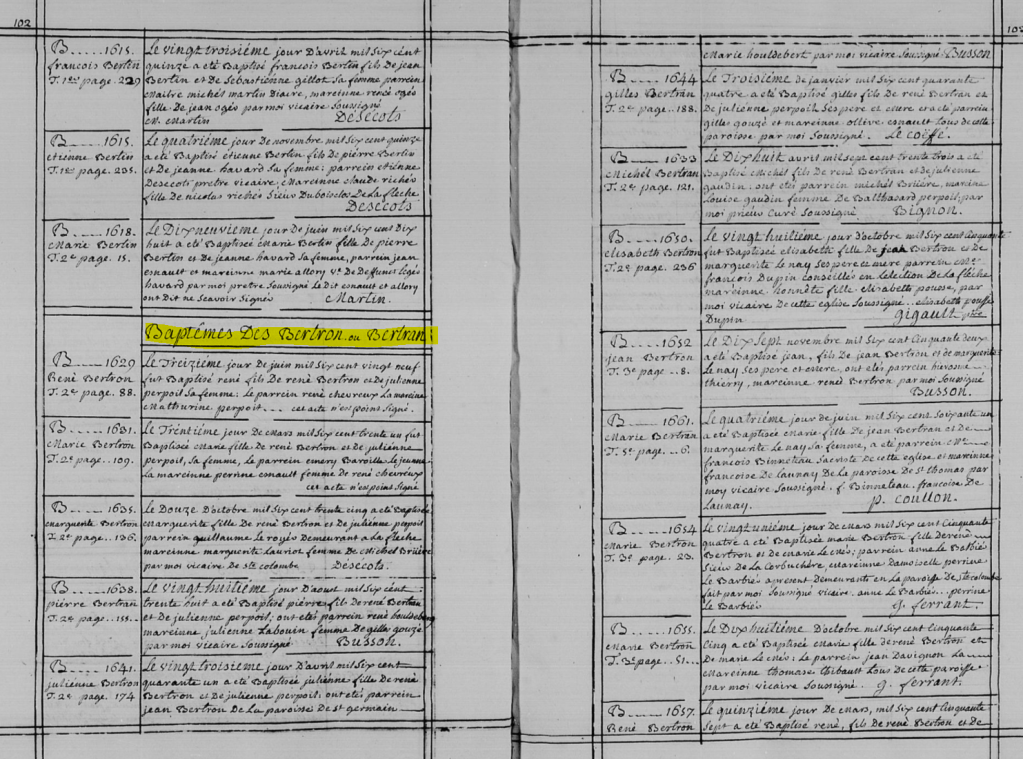 102
B.....1615.
francois Bertin
T. 1re page. 229
Le vingt troisiéme jour D'avril mil Six cent
quinze a eté Baptisé francois Bertin fils De jean
Bertin et De Sebastienne gillot Sa femme parrein
Maitre michel martin Diacre, mareinne renée ogés
fille De jean ogés par moi vicaire Soussigné
M. Martin Desécots
B.....1615.
etienne Bertin
T. 1re page. 235.
Le quatriéme jour De novembre mil Six cent quinze
a eté Baptisé etienne Bertin fils De piérre Bertin
et De jeanne havard Sa femme; parrein etienne
Desecots prètre vicaire, Mareinne claude richés
fille De nicolas richés Sieur Duboisclos De La fleche
Desécots
B.....1618.
Marie Bertin
T. 2e page. 15.
Le Dixneuvieme jour De juin mil Six cent Dix
huit a eté Baptisée Marie Bertin fille De pierre
Bertin et De jeanne havard Sa femme, parrein jean
esnault et mareinne marie allory ve De Deffunt Légés
havard par moi pretre Soussigné Le Dit esnault et allory
ont Dit ne Scavoir Signer Martin.
Baptêmes Des Bertron ou Bertran
B......1629
René Bertron
T. 2e page. 88.
Le Treiziéme jour De juin mil Six cent vingt neuf
fut Baptisé rené fils De rené Bertron et De julienne
perpoil Sa femme. Le parrein rené chevreux La mareine
Mathurine perpoil... cet acte n'est point Signé.
B......1631.
Marie Bertron
T. 2e page.. 109.
Le Trentiéme jour De Mars mil Six cent trente un fut
Baptisée Marie fille De rené Bertron et De julienne
perpoil, Sa femme, Le parrein emery Baroille Le jeaune
La mareinne perrine esnault femme De rené chevreux
cet acte n'est point Signé
B.....1635.
Marguerite Bertron
T. 2e page.. 136.
Le Douze D'octobre mil Six cent trente cinq a eté Baptisée
Marguerite fille De rené Bertron et De julienne perpoil
parrein guillaume Le royés Demeurant a La fleche
mareinne marguerite Lauriot femme De Michel Brüiere
par moi vicaire De Ste colombe Desécots.
B.....1638.
pièrre Bertron
T. 2e page... 155..
Le vingt huitiéme jour D'aoust mil Six cent
trente huit a eté Baptisé pièrre, fils De rené Bertron
et De julienne perpoil; ont etés parrein rené houldebert
mareinne julienne Labouin femme De gilles gouzé
par moi vicaire Soussigné Busson.
B.....1641.
julienne Bertron
T. 2e page. 174
Le vingt troisieme jour D'avril mil Six cent
quarante un a eté Baptisée julienne fille De rené
Bertron et De julienne perpoil. ont etés parrein
jean Bertron De La paroisse De St germain
Marie houldebert par moi vicaire Soussigné Busson
B.....1644
gilles Bertron
T. 2e page.. 188.
Le Troisiéme De janvier mil Six cent quarante
quatre a eté Baptisé gilles fils De rené Bertron et
De julienne perpoil Ses pere et mere et a eté parrein
gilles gouzé et mareinne ollive esnault tous De cette
paroisse par moi Soussigné. Le coëffé.
B.....1633
Michél Bertran
T. 2e page. 121.
Le Dix huit avril mil sept cent trente trois a eté
Baptisé Michél fils De rené Bertran et De julienne
gaudin: ont etés parrein michél Brüiere, mareine
Louise gaudin femme De Balthasard perpoil, par
moi prieur Curé Soussigné Bignon.
B.....1650.
elisabeth Bertron
T. 2e page. 236
Le vingt huitiéme jour d'octobre mil Six cent Cinquante
fut Baptisée elisabeth fille De jean Bertron et De
marguerite Le nay Ses pere et mere parrein Me
francois Dupin conseillés en Lelection De La flèche
mareinne honnête fille elisabeth pousse, par
moi vicaire De cette eglise Soussigné.. elisabeth pousse
Dupin gigault ptre
B.....1652
jean Bertron
T. 3e page.. 8.
Le Dix Sept novembre mil Six cent Cinquante deux
a eté Baptisé jean, fils De jean Bertron et De marguerite
Le nay Ses pere et mere, ont etés parrein hierosme
thierry, mareinne rené Bertron par moi Soussigné
Busson.
B.....1661.
Marie Bertron
T. 5e page.... 6.
Le quatriéme jour De juin mil Six cent Soixante un
a eté Baptisée Marie fille De jean Bertron et De
marguerite Le nay Sa femme, a eté parrein Me
francois Binneteau Sacriste De cette eglise et mareinne
francoise De Launay De La paroisse De St thomas par
moy vicaire Soussigné. f. Binneteau. francoise De
Launay. p. coullon.
B.....1654
Marie Bertron
T. 3e page.. 23.
Le vingt unième jour De Mars mil Six cent Cinquante
quatre a eté Baptisée marie Bertron fille De rené
Bertron et De marie Le Cnés; parrein anne Le Barbiés
Sieur De La Corbuchere, mareinne Damoiselle perrine
Le Barbiés apresent Demeurante en La paroisse De Ste colombe
fait par moi Soussigné vicaire. anne Le Barbiés... perrine
Le Barbiés g. ferrant.
B.....1655.
Marie Bertron
T. 3e page... 51...
Le Dix huitiéme D'octobre mil Six cent Cinquante
Cinq a eté Baptisée Marie fille De rené Bertron et
De marie Le Cnés: Le parrein jean Davignon La
Mareinne thomase thibault tous De cette paroisse
par moi vicaire Soussigné. g. ferrant.
B.....1657.
René Bertron
Le quinziéme jour De Mars, mil Six cent Cinquante
Sept a eté Baptisé rené, fils De rené Bertron et De